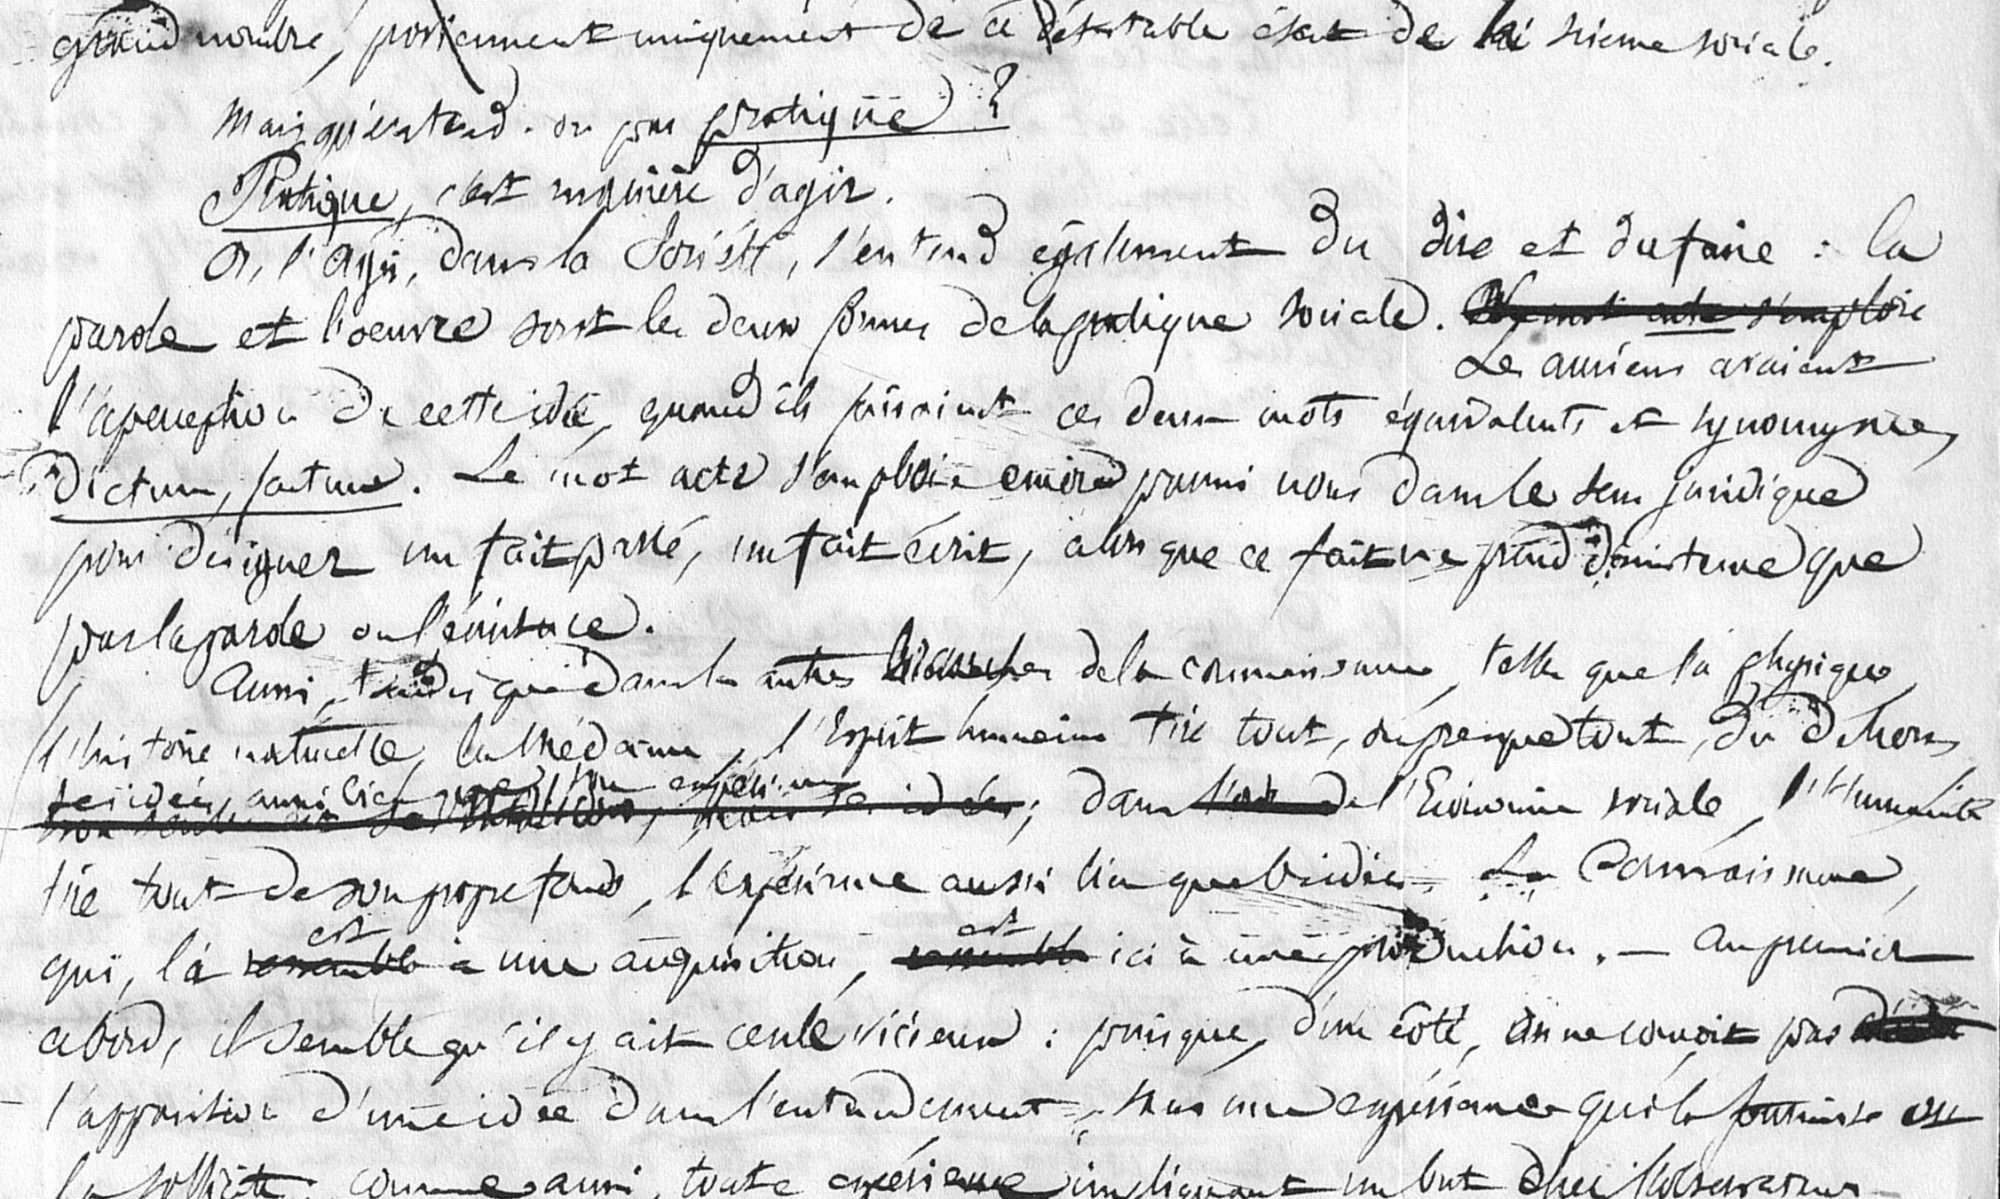 grand nombre, proviennent uniquement de ce détestable état de la science sociale.
Mais qu'entend-on par pratique ?
Pratique, c'est manière d'agir.
Or, l'agir, dans la Société, s'entend également du dire et du faire : la
parole et l'oeuvre sont les deux formes de la pratique sociale. Le mot acte s'emploie
Les anciens avaient
l'aperception de cette idée, quand ils faisaient ces deux mots équivalents et synonymes,
dictum, factum. Le mot acte s'emploie encore parmi nous dans le sens juridique
pour désigner un fait passé, un fait écrit, alors que ce fait ne prend d'existence que
par la parole ou l'écriture.
Aussi, tandis que dans les autres branches de la connaissance, telles que la physique,
l'histoire naturelle, la médecine, l'Esprit humain tire tout, ou presque tout, du dehors,
ses idées, aussi bien que son expérience
ses idées; dans l'ordre de l'Economie sociale, l'Humanité
tire tout de son propre fonds, l'expérience aussi bien que l'idée. La Connaissance,
est est
qui, là ressemble à une acquisition, ressemble ici à une production. — Au premier
abord, il semble qu'il y ait cercle vicieux : puisque, d'un côté, on ne conçoit pas
l'apparition d'une idée dans l'entendement, sans une expérience qui la fournisse ou
la sollicite; comme aussi, toute expérience impliquant un but chez l'observateur